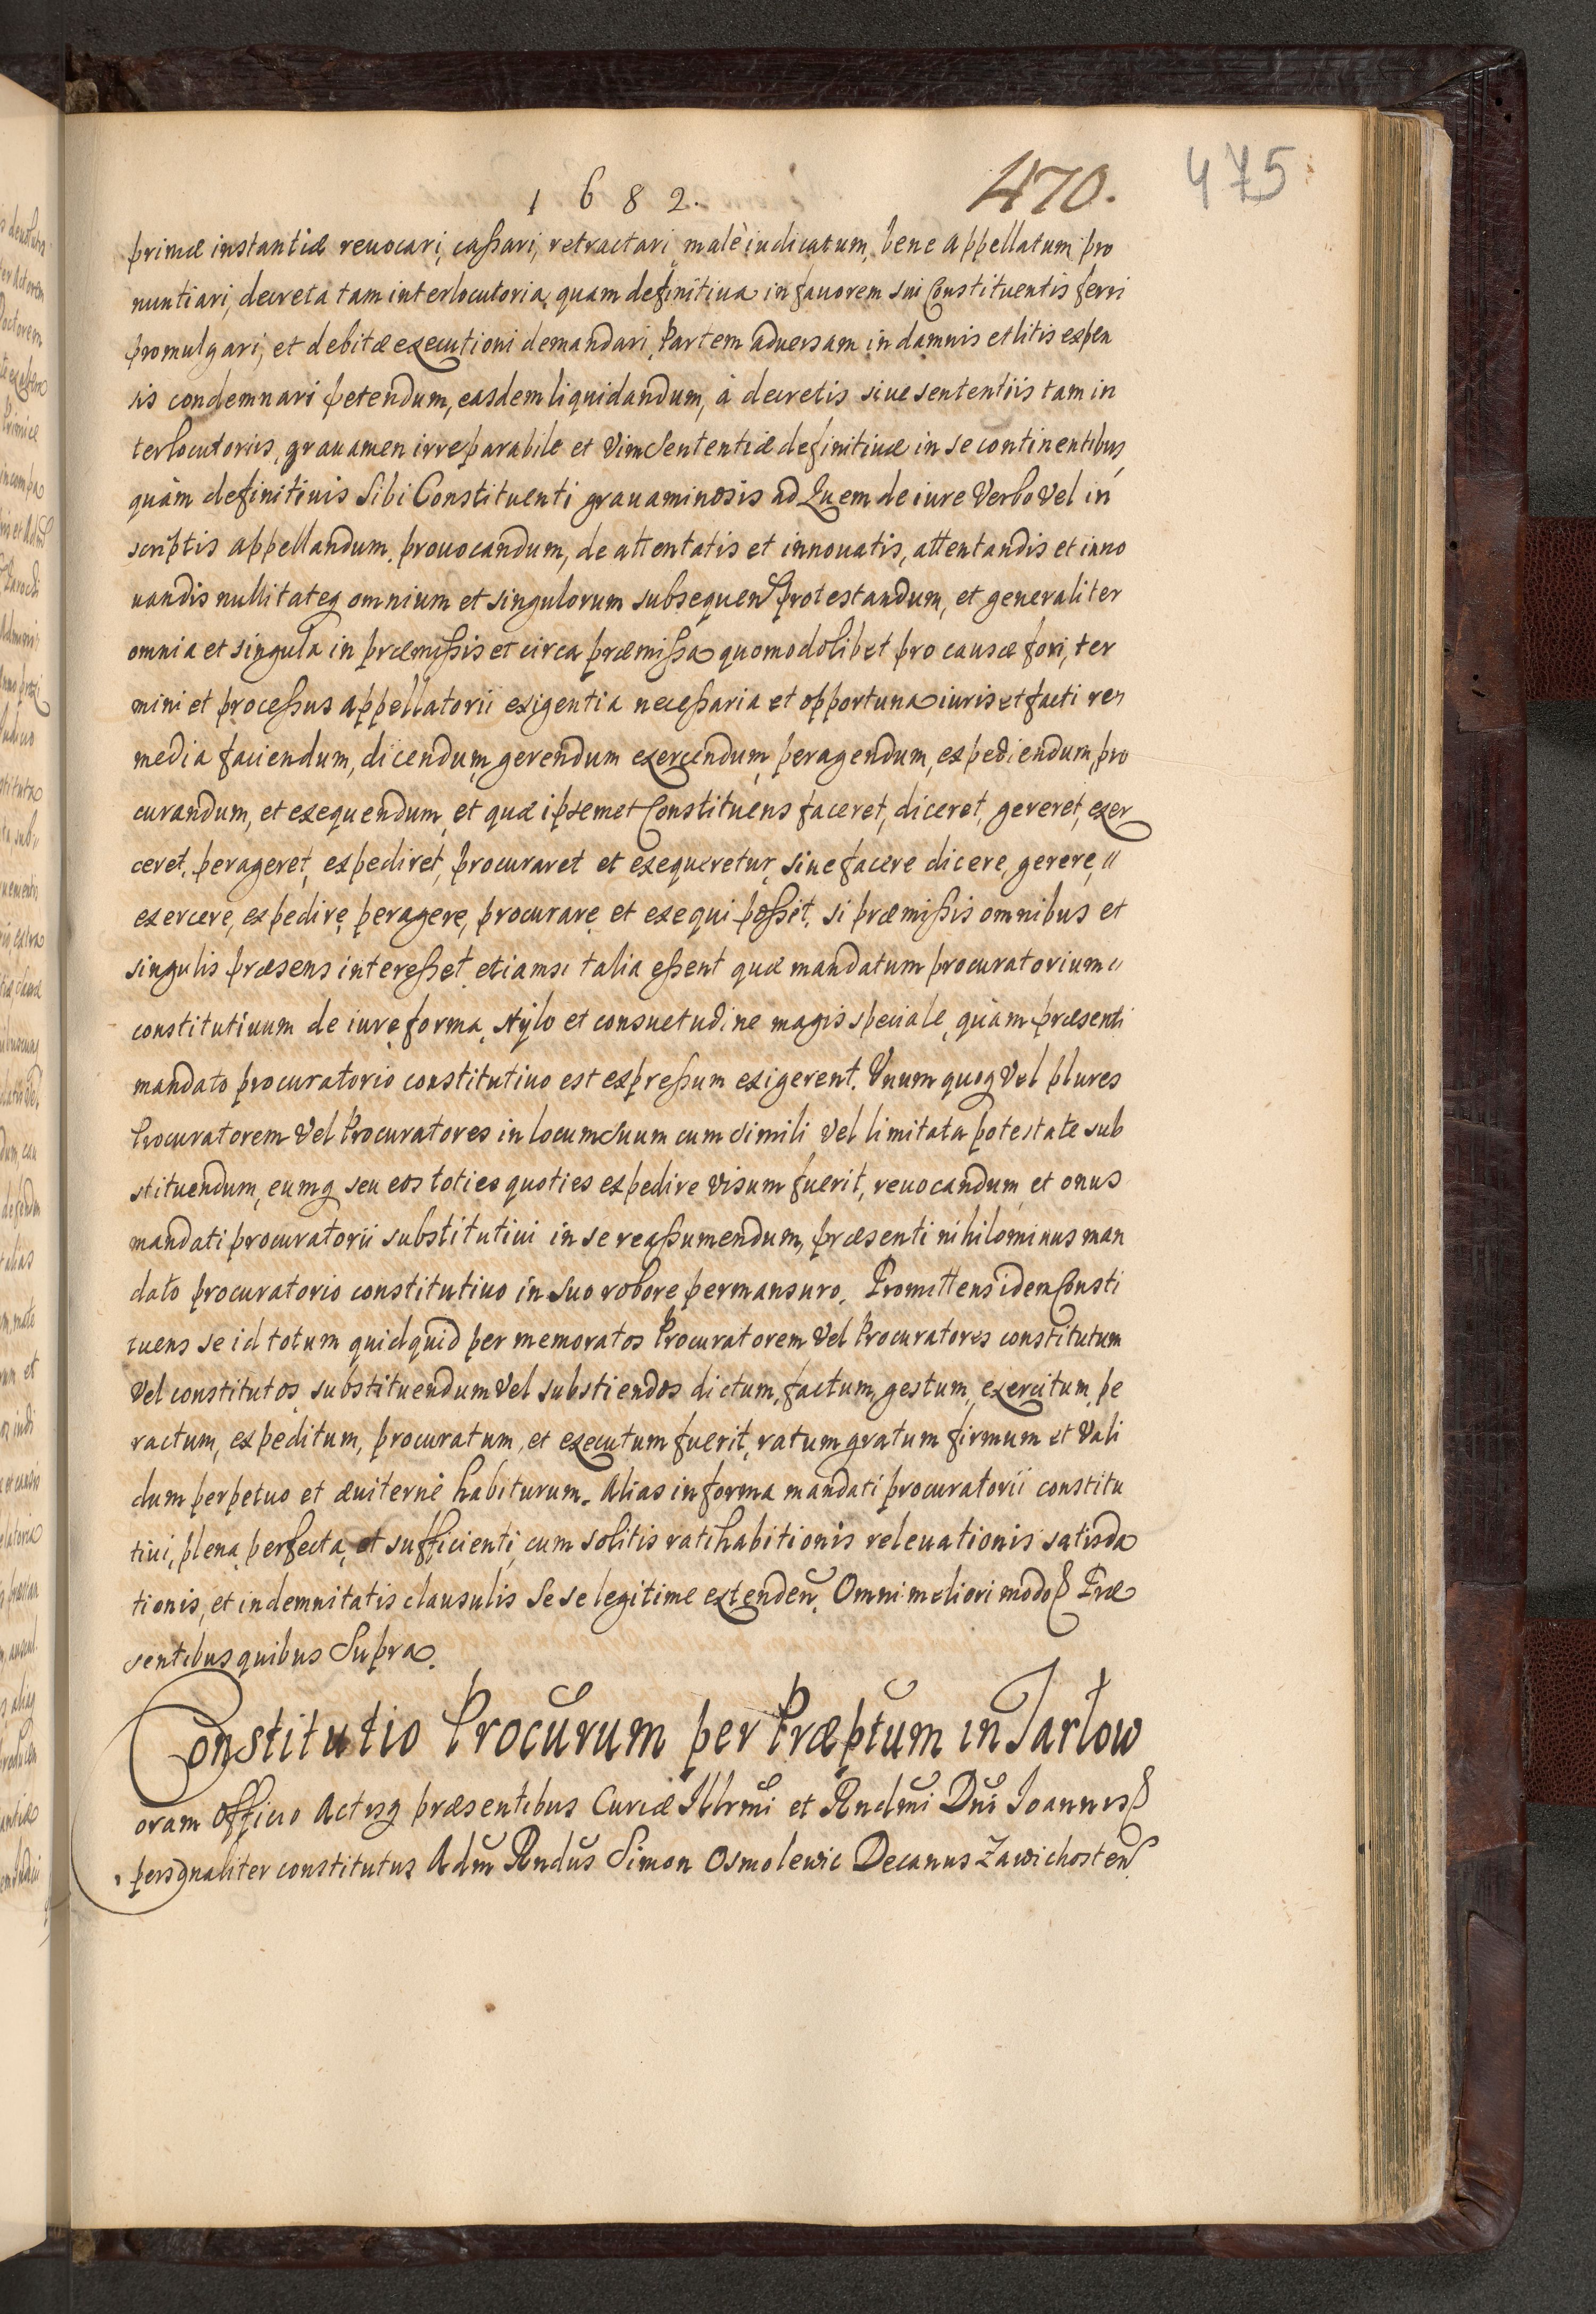 1682.
470.
475
primæ instantiæ reuocari, cassari, retractari, malè iudicatum, bene appellatum pro
nuntiari, decreta tam interlocutoria quam definitiua in fauorem sui Constituentis ferri
promulgari, et debitæ executioni demandari, Partem aduersam in damnis et litis expen
sis condemnari petendum, easdem liquidandum, à decretis siue sententiis tam in
terlocutoriis, grauamen irreparabile et Vim Sententiæ definitiuæ in se continentibus,
quàm definitiuis Sibi Constituenti grauaminosis ad Quem de iure Verbo Vel in
scriptis appellandum, prouocandum, de attentatis et innouatis, attentandis et inno
uandis nullitateq omnium et singulorum subsequen protestandum, et generaliter
omnia et singula in præmissis et circa præmissa quomodolibet pro causæ fori, ter
mini et processus appellatorii exigentia necessaria et opportuna iuris et facti re
media faciendum, dicendum, gerendum exercendum, peragendum, expediendum, pro
curandum, et exequendum, et quæ ipsemet Constituens faceret, diceret, gereret, exer
ceret, perageret, expediret, procuraret et exequeretur, siue facere dicere, gerere,
exercere, expedire, peragere, procurare, et exequi posset, si præmissis omnibus et
singulis præsens interesset, etiamsi talia essent quæ mandatum procuratorium
constitutiuum de iure, forma, stylo et consuetudine magis speciale, quàm præsenti
mandato procuratorio constitutiuo est expressum exigerent. Vnum quoq Vel plures
Procuratorem Vel Procuratores in locum Suum cum simili Vel limitata potestate sub
stituendum, eumq seu eos toties quoties expedire visum fuerit, reuocandum et onus
mandati procuratorii substitutiui in se reassumendum, præsenti nihilominus man
dato procuratorio constitutiuo in suo robore permansuro. Promittens idem Consti
tuens se id totum quidquid per memoratos Procuratorem Vel Procuratores constitutum
Vel constitutos, substituendum Vel substiendos dictum, factum, gestum, exercitum, pe
ractum, expeditum, procuratum, et executum fuerit, ratum gratum firmum et Vali
dum perpetuo et æuiternè habiturum. Alias in forma mandati procuratorii constitu
tiui, plena, perfecta, et sufficienti, cum solitis ratihabitionis releuationis satisda
tionis, et indemnitatis clausulis Se se legitime extenden. Omni meliori modo Præ
sentibus quibus Supra.
Constitutio Procurum per Præptum in Tarłow
oram Officio Actisq præsentibus Curiæ Illrmi et Rndmi Dni Ioannis
personaliter constitutus Adm Rndus Simon Osmolewic Decanus Zawichosten